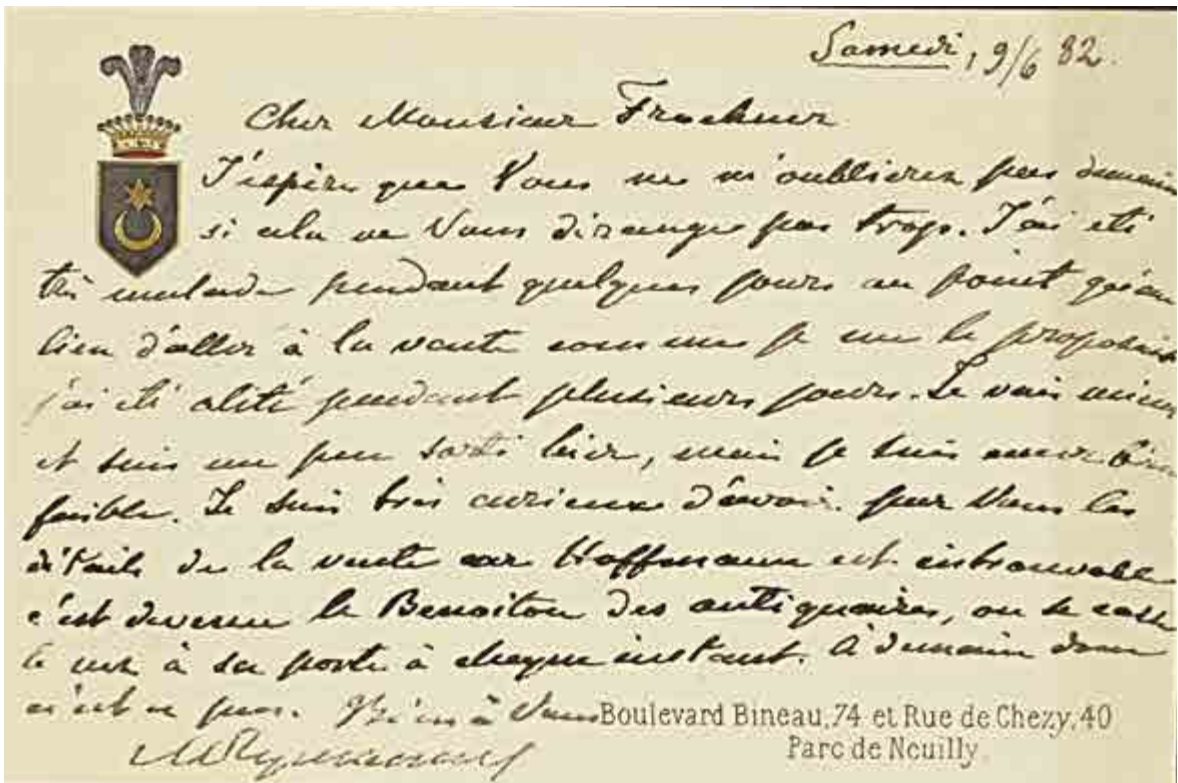 Samedi, 9/6 82.
Cher Monsieur Froehner
J'espère que Vous ne m'oublierez pas demain
si cela ne Vous dérange pas trop. J'ai été
très malade pendant quelques jours au point qu'au
lieu d'aller à la vente comme je me le proposais
j'ai été alité pendant plusieurs jours. Je vais mieux
et suis un peu sorti hier, mais je suis encore bien
faible. Je suis très curieux d'avoir par Vous les
détails de la vente car Hoffmann est introuvable
c'est devenu le Benoiton des antiquaires, on se casse
le nez à sa porte à chaque instant. À demain donc
n'est ce pas. Bien à Vous
Boulevard Bineau, 74 et Rue de Chezy, 40
Parc de Neuilly